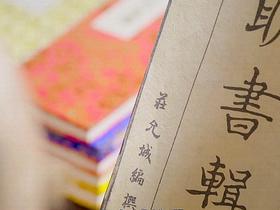 書輯
莊允城編撰